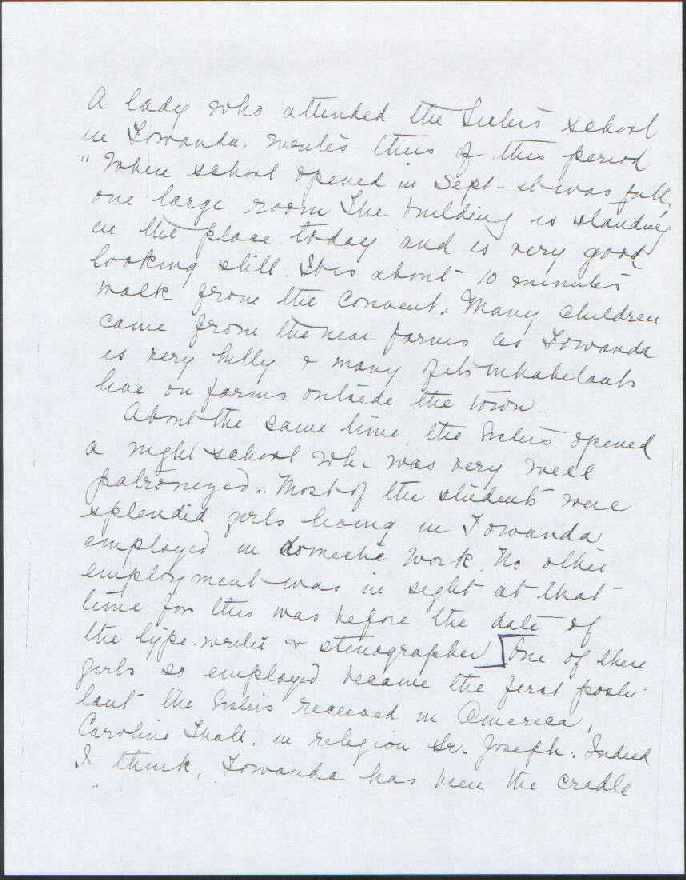 A lady who attended the Sisters school
in Towanda. writes thus of this period
"When school opened in Sept - it was full,
one large room The building is standing
in the place today and is very good
looking still. It is about 10 minutes
walk from the Convent. Many children
came from the near farms as Towanda
is very hilly & many of its inhabitants
live on farms outside the town
About the same time, the Sisters opened
a night school wh. was very well
patronized. Most of the students were
splendid girls living in Towanda
employed in domestic work. No other
employment was in sight at that
time for this was before the date of
the type-writer & stenographer [One of these
girls so employed became the first postu-
lant the Sisters received in America,
Caroline in religion Sr. Joseph. Indeed
I think, Towanda has been the cradle